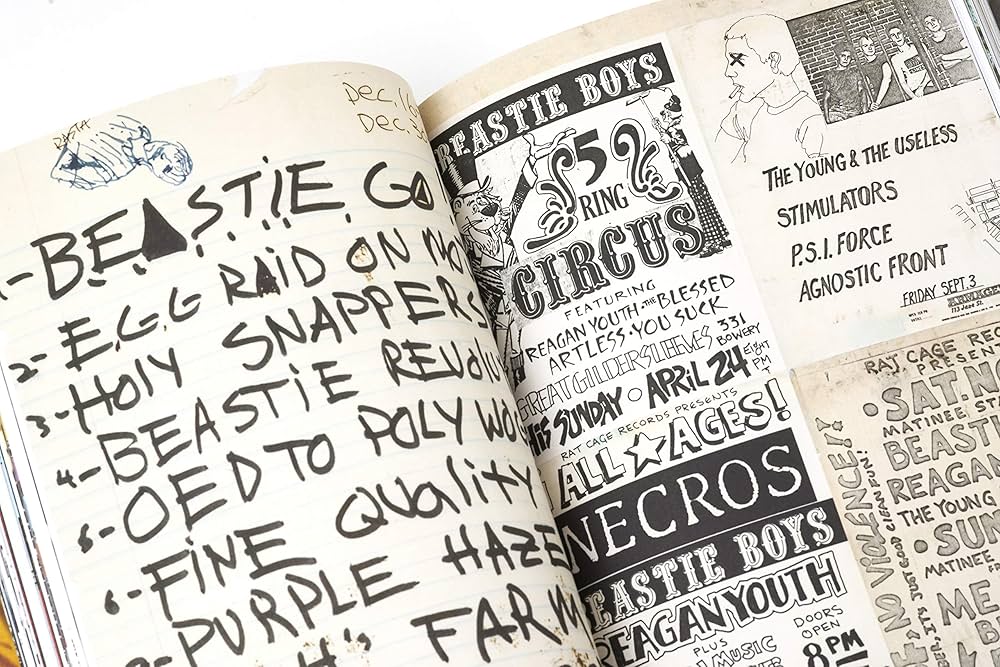 RASTA
Dec. 1
Dec. 3
1-BEASTIE GO
2-EGG RAID ON MO
3-HOLY SNAPPERS
4-BEASTIE REVOLU
5-OED TO POLYWO
6-FINE QUALITY
PURPLE HAZE
FARM
BEASTIE BOYS
5
RING
CIRCUS
FEATURING
REAGAN YOUTH·THE BLESSED
ARTLESS·YOU SUCK
GREAT GILDERSLEEVES 331
BOWERY
THIS SUNDAY · APRIL 24 EIGHT
PM
RAT CAGE RECORDS PRESENTS
ALL AGES!
NECROS
BEASTIE BOYS
REAGAN YOUTH
PLUS
MUSIC
DOORS
OPEN
8 PM
THE YOUNG & THE USELESS
STIMULATORS
P.S.I. FORCE
AGNOSTIC FRONT
FRIDAY SEPT. 3
RAT CAGE REC
PRESEN
·SAT. NO
MATINEE ST
BEASTI
REAGAN
THE YOUNG
·SUN
MATINEE
ME
B
NO VIOLENCE!!
IT'S JUST GOOD CLEAN FUN!